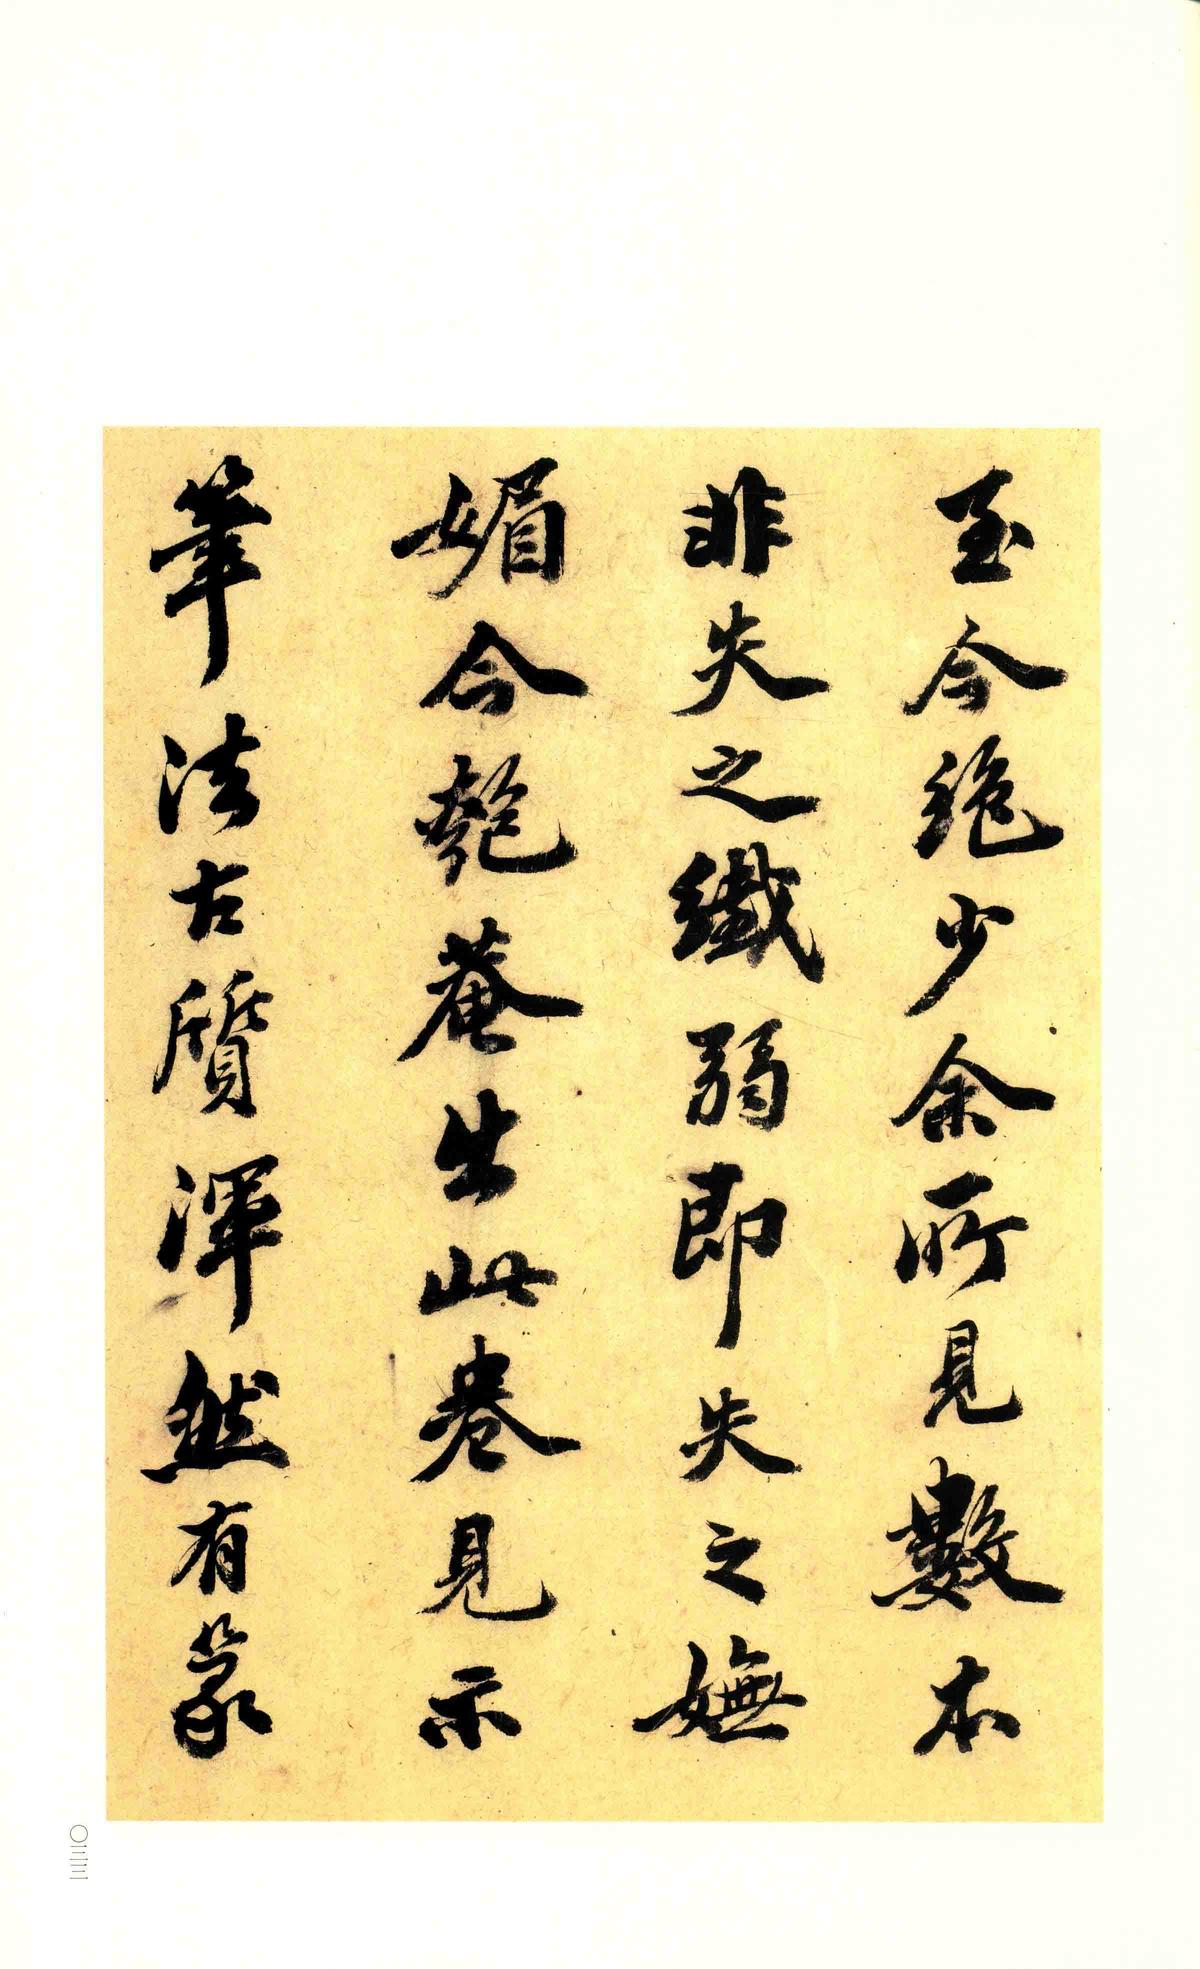 至今絶少余所見數本
非失之纖弱即失之嫵
媚今匏菴出此卷見示
筆法古質渾然有篆
〇三三